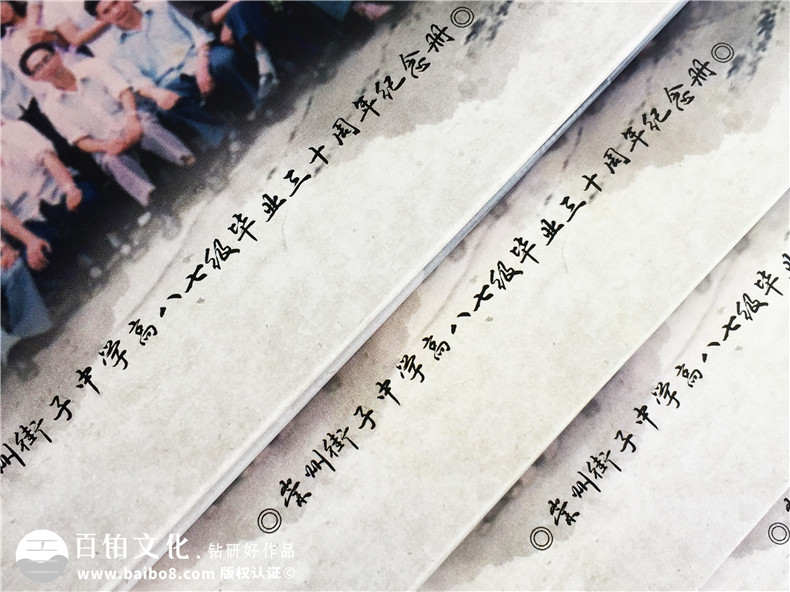 州街子中学高八七级毕业三十周年纪念册◎
◎崇州街子中学高八七级毕业三十周年纪念册◎
◎崇州街子中学高八七级毕业
◎
百铂文化.钻研好作品
www.baibo8.com 版权认证©